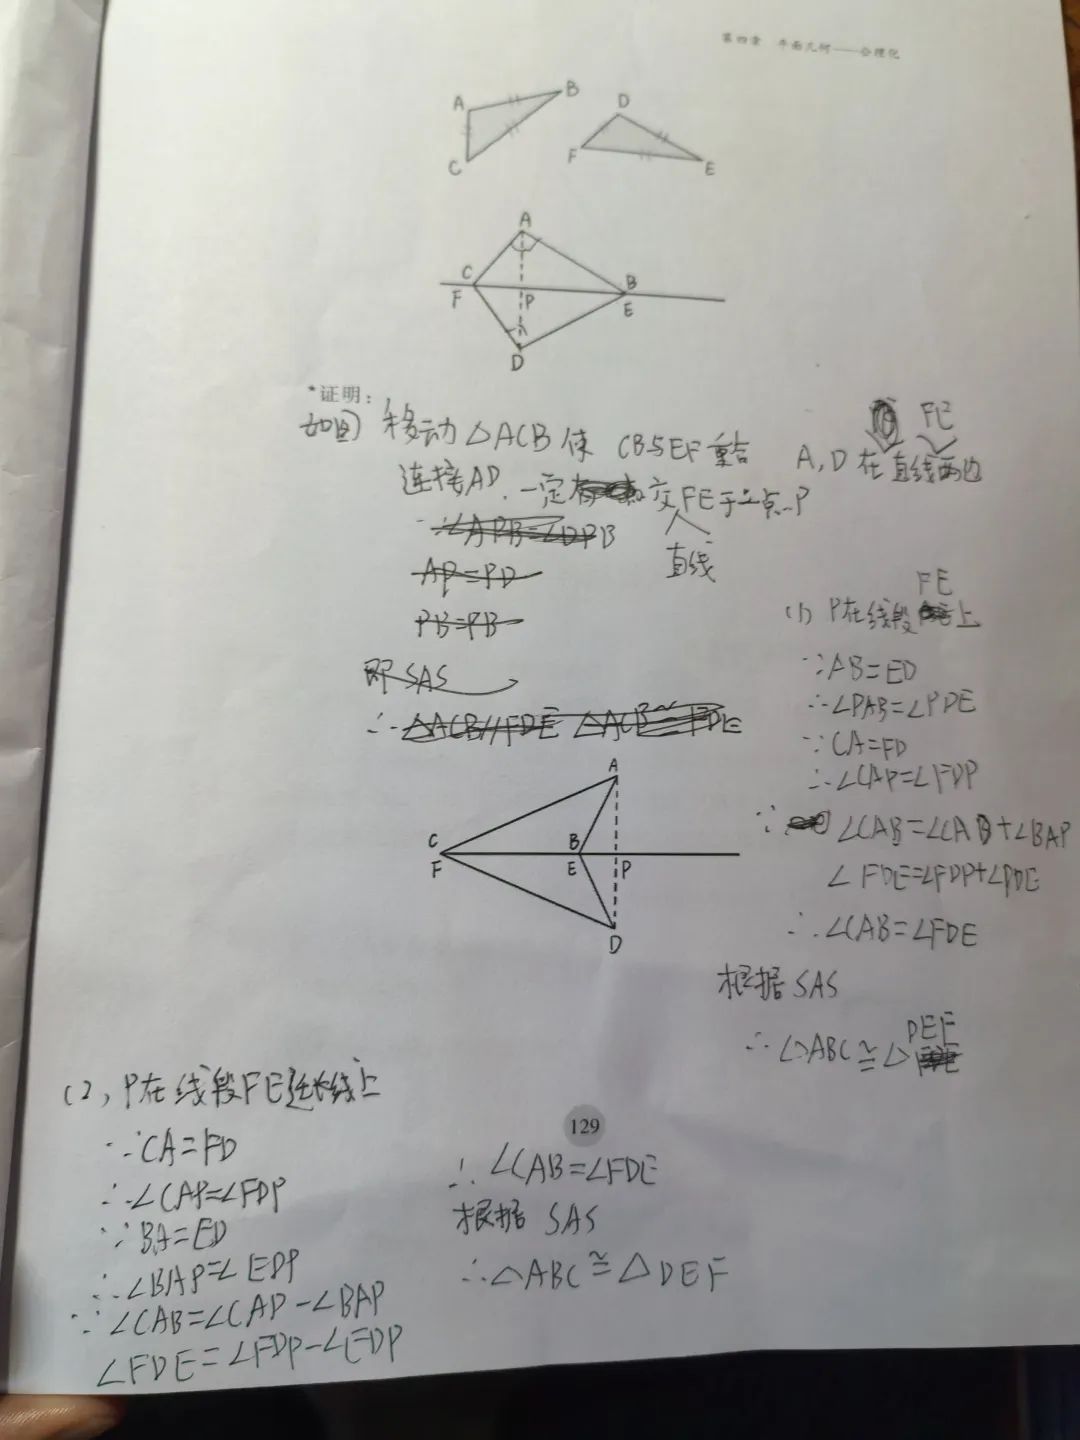 第四章 平面几何——合理化
A
B
C
D
F
E
A
C
B
F
P
E
D
*证明：
如图 移动△ACB使 CB与EF重合
FE
A,D在直线两边
连接AD，一定交FE于一点P
直线
∵∠APB=∠DPB
AP=PD
PB=PB
即SAS
∴△ACB//FDE △ACB≅FDE
(1) P在线段FE上
∵AB=ED
∴∠PAB=∠PDE
∵CA=FD
∴∠CAP=∠FDP
∵∠CAB=∠CAP+∠BAP
∠FDE=∠FDP+∠PDE
∴∠CAB=∠FDE
根据SAS
∴△ABC≅△DEF
A
C
B
F
E
P
D
(2),P在线段FE延长线上
∵CA=FD
∴∠CAP=∠FDP
∵BA=ED
∴∠BAP=∠EDP
∵∠CAB=∠CAP-∠BAP
∠FDE=∠FDP-∠EDP
129
∴∠CAB=∠FDE
根据SAS
∴△ABC≅△DEF